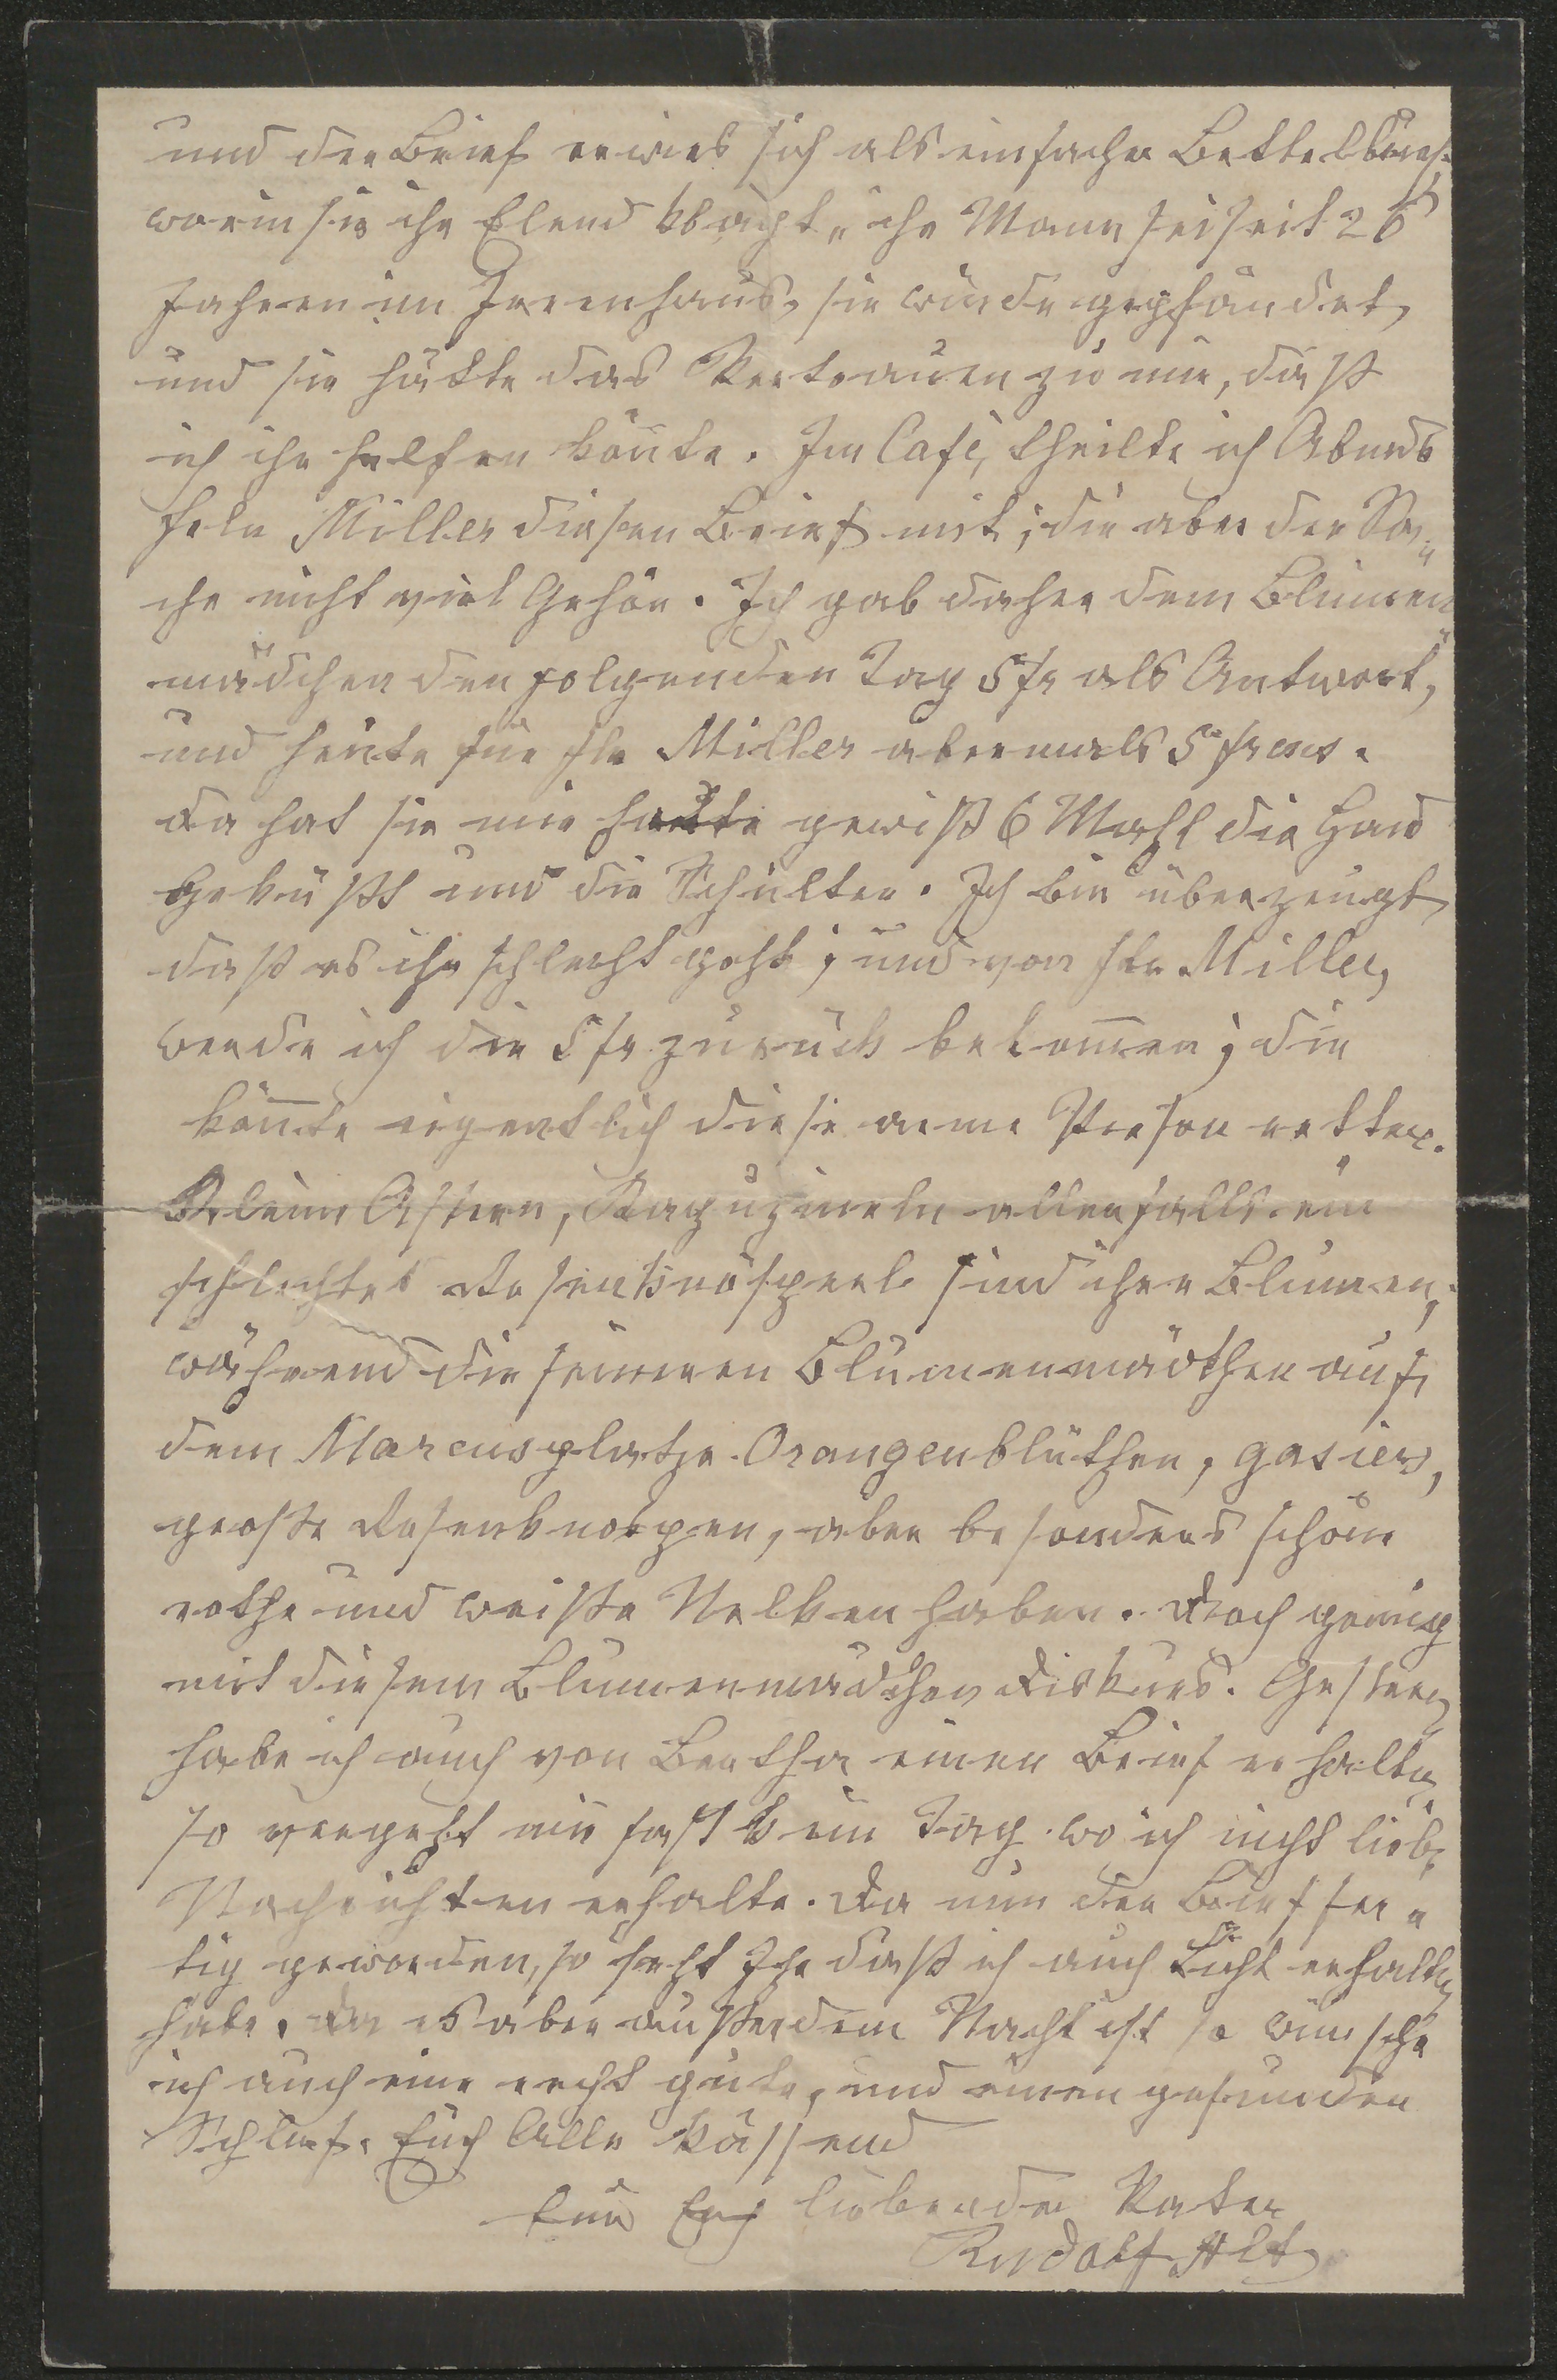 und der Brief erwies sich als einfacher Bettelbrief,
worin sie ihr Elend klagt, ihr Mann sei seit 26
Jahren im Irrenhaus, sie würde gepfändet,
und sie hätte das Vertrauen zu mir, daß
ich ihr helfen könnte. Im Café, theilte ich Abends
Frln Miller diesen Brief mit; die aber der Sa-
che nicht viel Gehör. Ich gab daher dem Blumen
mädchen den folgenden Tag 5 fr als Antwort,
und heute für Frln Miller abermals 5 francs.
Da hat sie mir heute gewiß 6 Mahl die Hand
geküßt und die Schulter. Ich bin überzeugt,
daß es ihr schlecht geht; und von Frln Miller,
werde ich die 5 fr zurück bekommen; die
könnte eigentlich diese arme Person retten.
Kleine Astern, allenfalls ein
schlechtes Rosenknosperl sind ihre Blumen,
während die feineren Blumenmädchen auf
dem Marcusplatze Orangenblüthen, gasiers,
große Rosenknospen, aber besonders schöne
rothe und weiße Nelken haben. Doch genug
mit diesem Blumenmädchen Diskurs. Gestern
habe ich auch von Bertha einen Brief erhalten,
so vergeht mir fast kein Tag wo ich nicht liebe
Nachrichten erhalte. Da nun der Brief fer-
tig geworden, so seht Ihr daß ich auch Licht erhalten
habe. Da es aber außerdem Nacht ist so wünsche
ich auch eine recht gute, und einen gesunden
Schlaf. Euch Alle küssend
Euer Euch liebender Vater
Rudolf Alt